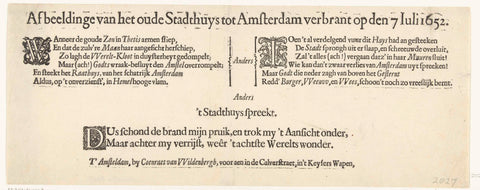 Afbeeldinge van het oude Stadthuys tot Amsterdam verbrant op den 7 Iuli 1652.
WAnneer de goude Zon in Thetis armen sliep,
En dat de zulv're Maan haar aangesicht herschiep,
Zo lagh de VVerelt-Kloot in duysterheyt gedompelt;
Maar (ach!) Godts wraak-besluyt den Amstel overrompelt;
En steekt het Raathuys, van het schatrijk Amsterdam
Aldus, op 't onverzienst, in Hemel hooge vlam.
Anders
TOen 't al verdelgend vuur dit Hays had an gesteeken
De Stadt sprongh uit er slaap, en schreeuwde overluit,
Zal 't alles (ach!) vergaan dat'er in haar Muuren sluit!
Wie kan dan 't zwaar verlies van Amsterdam uyt spreeken!
Maar Godt die neder zagh van boven het Gesternt
Redd' Burger, VVeeuw, en VVees, schoon 't noch zo vreeslijk bernt.
Anders
't Stadthuys spreekt.
DUs schond de brand mijn pruik, en trok my 't Aansicht onder,
Maar achter my verrijst, weêr 't achtste Werelts wonder.
T' Amsteldam, by Coenraet van VVildenbergh, voor aen in de Calverstraet, in't Keysers Wapen,
2027